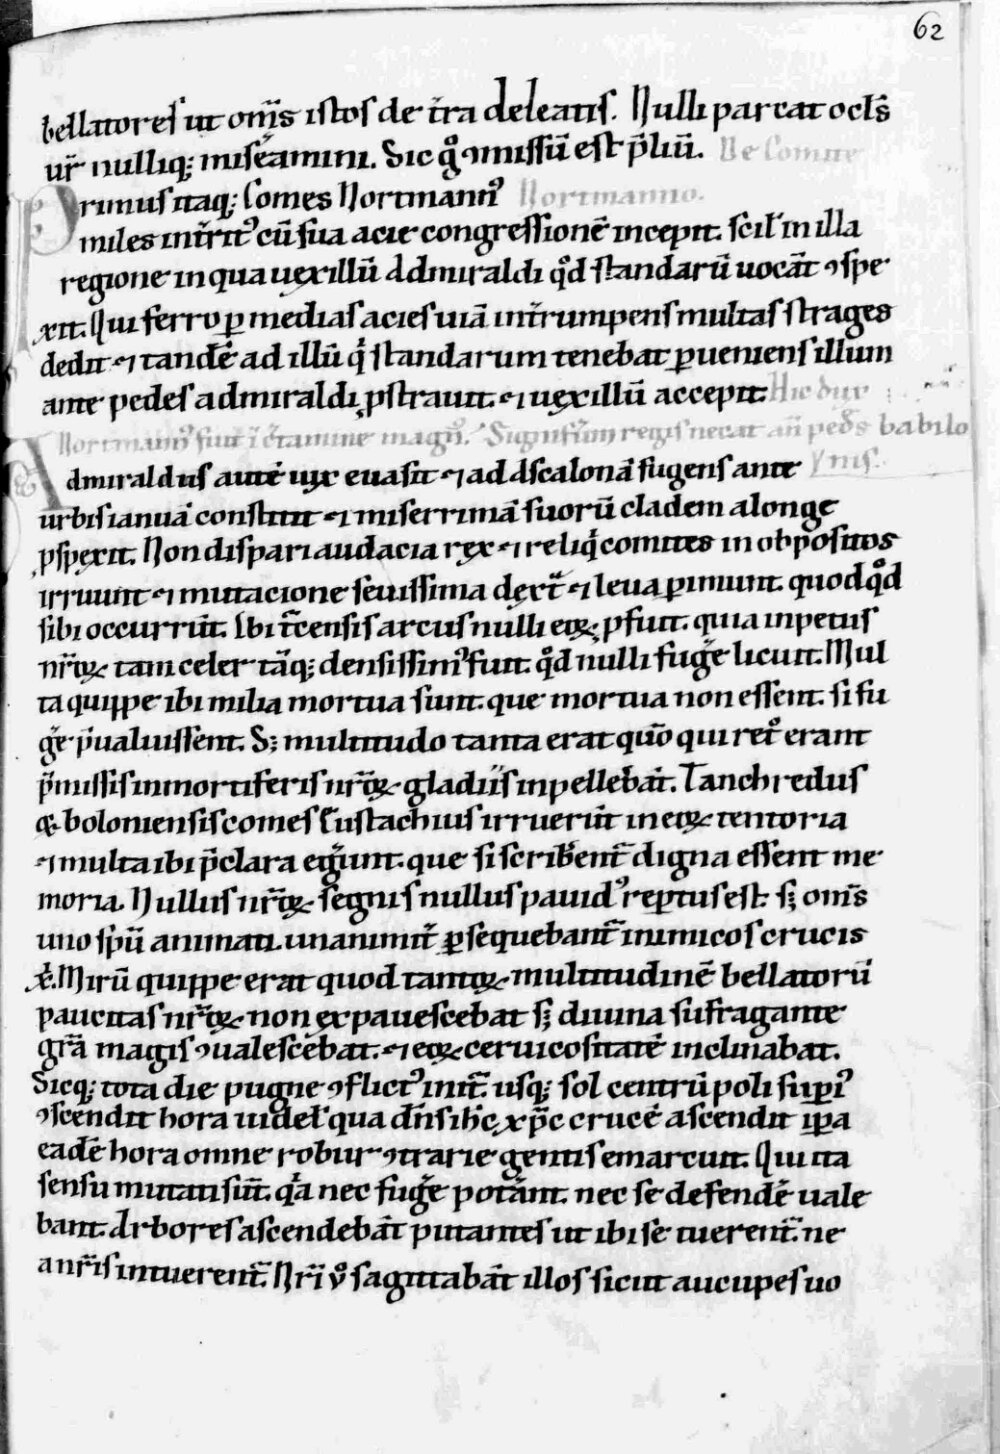 62
bellatores ut om̄s istos de t̄ra deleatis. Nulli parcat ocl̄s
ur̄ nulliq; mis̄eamini. Sic gͦ ꝯmissū est p̄liū. De Comite
Primus itaq; Comes Nortmannꝰ Nortmanno.
miles int̄ritꝰ cū sua acie congressionē incepit. scil' in illa
regione in qua uexillū Admiraldi qͦd standarū uocāt ꝯspe
xit. Qui ferro ꝑ medias acies uiā int̄rumpens multas strages
dedit ⁊ tandē ad illū q' standarum tenebat ꝑueniens illum
ante pedes admiraldi ꝓstrauit. ⁊ uexillū accepit. Hic dux
Nortmannꝰ fuit ī c̄tamine magnꝰ. necat an̄ pedes babilo
Admiraldus autē uix euasit ⁊ ad Ascalonā fugiens ante nis.
urbis ianuā constitit ⁊ miserrimā suorū cladem a longe
ꝓspexit. Non dispari audacia rex ⁊ reliq' comites in obpositos
irruunt ⁊ mutacione seuissima dext̄ ⁊ leua ꝑimunt. quod qͦd
sibi occurrūt. Ibi t̄censis arcus nulli eoꝝ ꝓfuit. quia inpetus
nr̄oꝝ tam celer tāq; densissimꝰ fuit. qͦd nulli fuḡe licuit. Mul
ta quippe ibi milia mortua sunt. que mortua non essent. si fu
ḡe p̄ualuissent. S; multitudo tanta erat quō qui retͦ erant
p̄missis in mortiferis nr̄oꝝ gladiis inpellebāt. Tanchredus
q; boloniensis comes Eustachius irruerūt in eoꝝ tentoria
⁊ multa ibi p̄clara eḡunt. que si scribent̄ digna essent me
moria. Nullus nr̄oꝝ segnis nullus pauidꝰ reꝑtus est. s; om̄s
uno spū animati unanimit̄ ꝑsequebant̄ inimicos crucis
x̄. Mirū quippe erat quod tantoꝝ multitudinē bellatorū
paucitas nr̄oꝝ non expauescebat s; diuina sufragante
gr̄a magis ꝯualescebat. ⁊ eoꝝ ceruicositatē inclinabat.
Sicq; tota die pugne ꝯflictꝰ init̄. usq; sol centrū poli suꝑiꝰ
ꝯscendit hora uidel' qua dn̄s ih̄c xp̄c crucē ascendit ip̄a
eadē hora omne robur ꝯtrarie gentis emarcuit. Qui ita
sensu mutati sūt. q̄a nec fuḡe pot̄ant. nec se defendē uale
bant. Arbores ascendebāt putantes ut ibi se tuerent̄. ne
a nr̄is intuerent̄. Nr̄i uͦ sagittabāt illos sicut aucupes uo